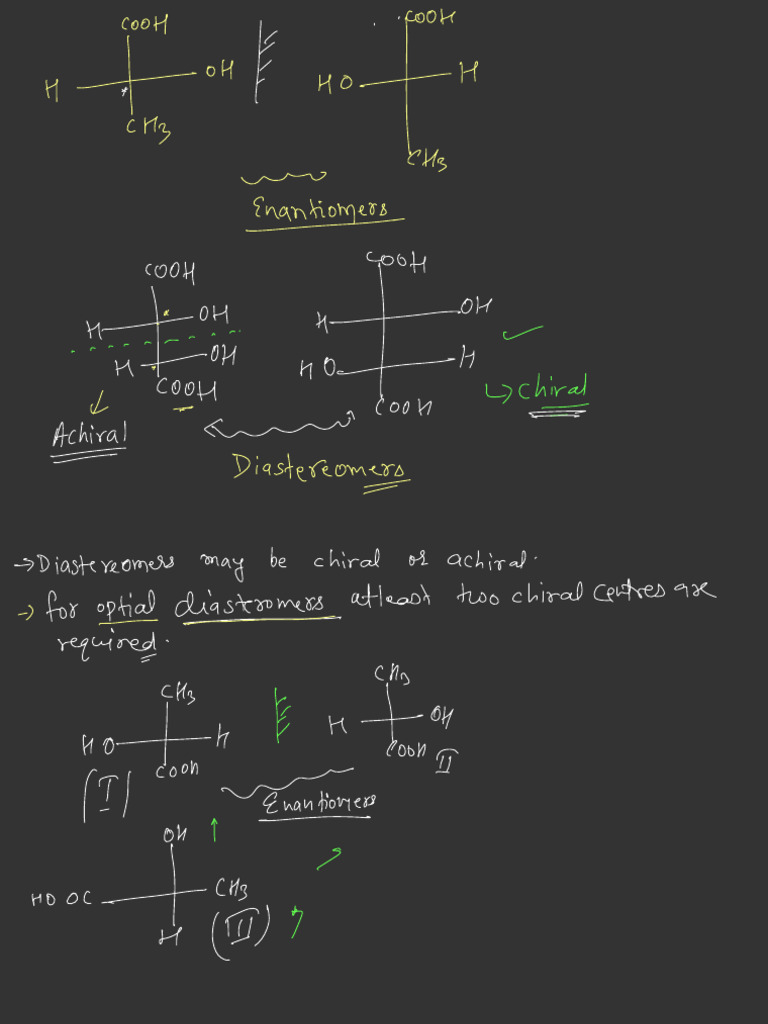 COOH COOH
H OH HO H
*
CH3 CH3
Enantiomers
COOH COOH
H OH H OH
H OH HO H
COOH COOH
chiral
Achiral
Diastereomers
→Diastereomers may be chiral or achiral.
→ for optial diastromers atleast two chiral centres are
required.
CH3 CH3
HO H H OH
COOH COOH
(I) II
Enantiomers
OH
HOOC CH3
H (III)